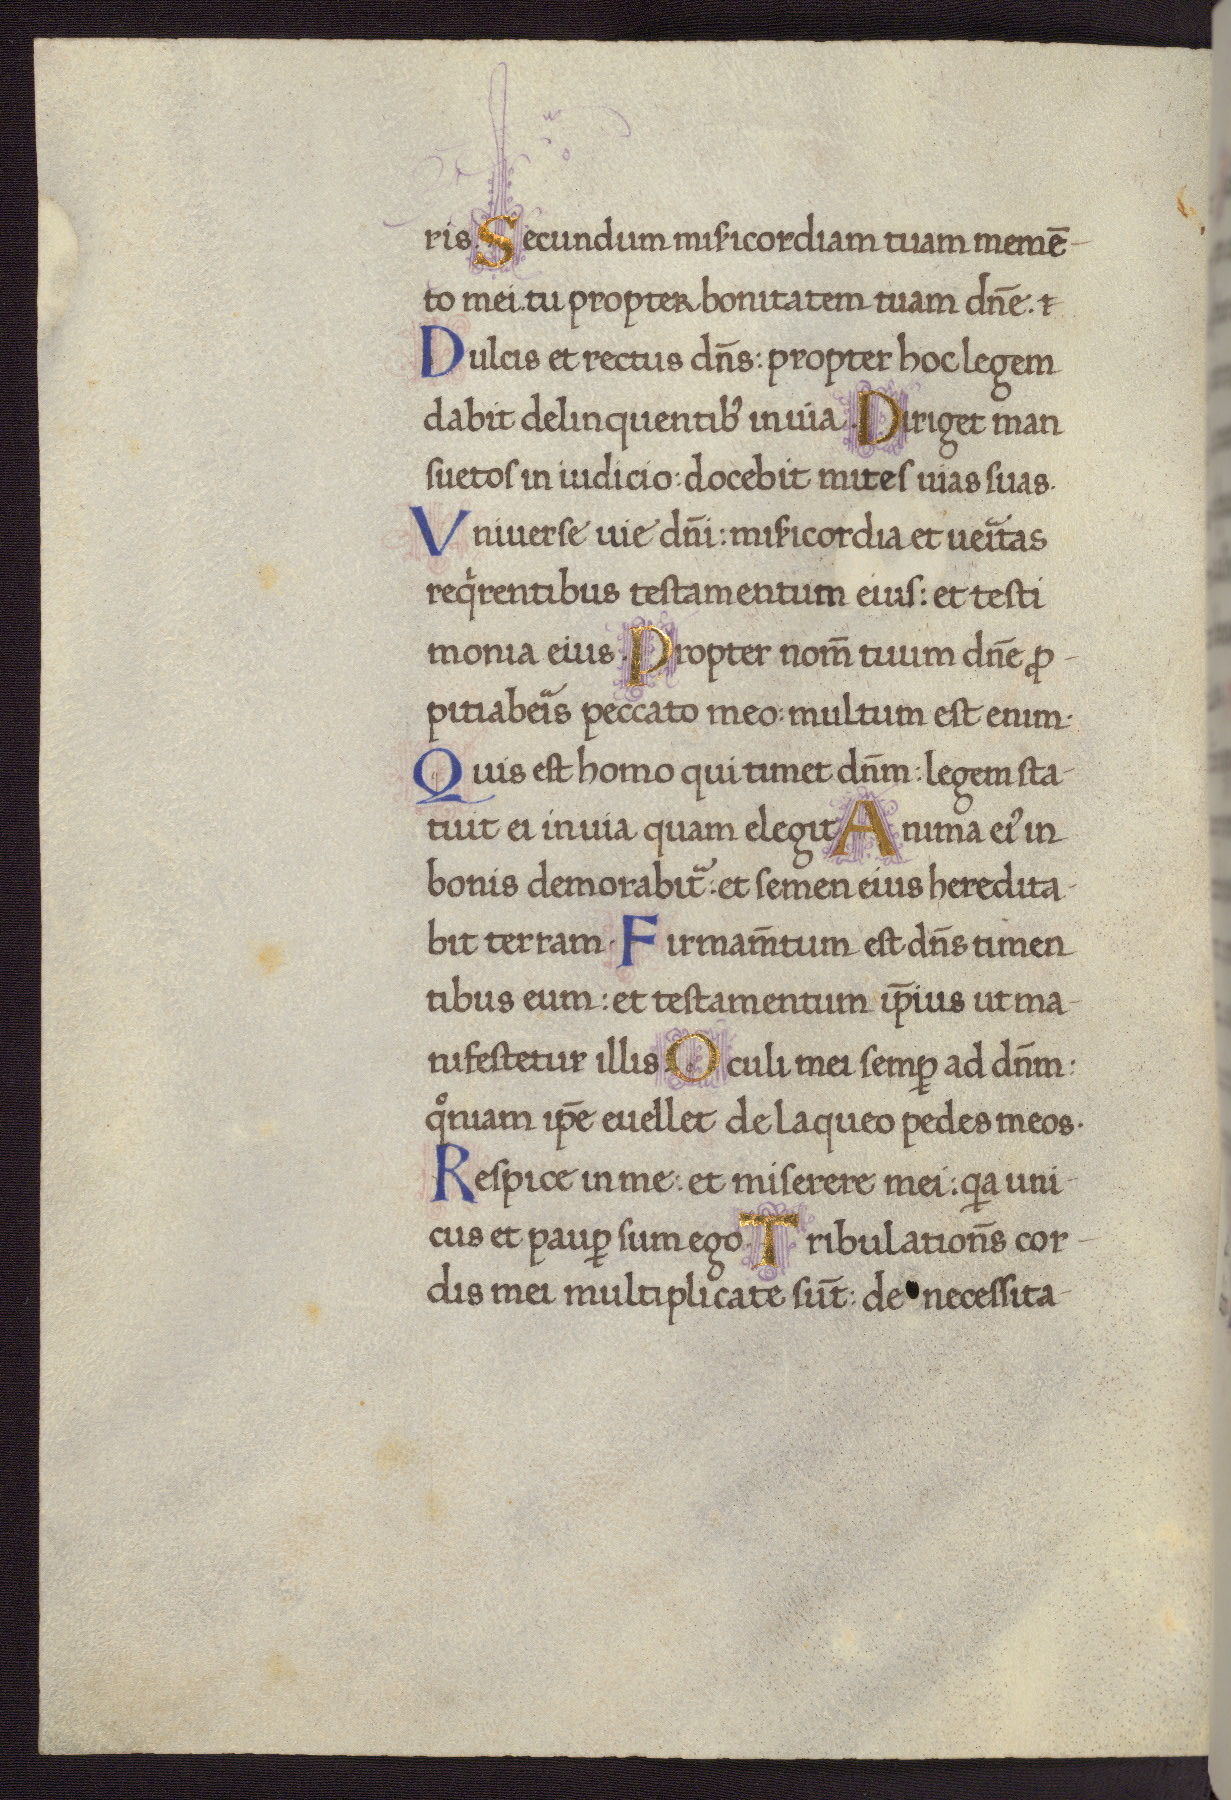 ris. Secundum mis̃icordiam tuam memē-
to mei. tu propter bonitatem tuam dñe: t
Dulcis et rectus dñs: propter hoc legem
dabit delinquentibꝰ in uia. Diriget man
suetos in iudicio: docebit mites uias suas.
Vniuerse uie dñi: mis̃icordia et ueı̃tas
reqͥrentibus testamentum eius: et testi
monia eius. Propter nom̃ tuum dñe ꝓ-
pitiabeı̃s peccato meo: multum est enim.
Quis est homo qui timet dñm: legem sta-
tuit ei in uia quam elegit. Anima eiꝰ in
bonis demorabit᷑: et semen eius heredita-
bit terram. Firmam̃tum est dñs timen
tibus eum: et testamentum ip̃ius ut ma-
nifestetur illis. Oculi mei semꝑ ad dñm:
qͦniam ip̃e euellet de laqueo pedes meos.
Respice in me: et miserere mei: qͣa uni-
cus et pauꝑ sum ego. Tribulation̄s cor-
dis mei multiplicate sūt: de necessita-